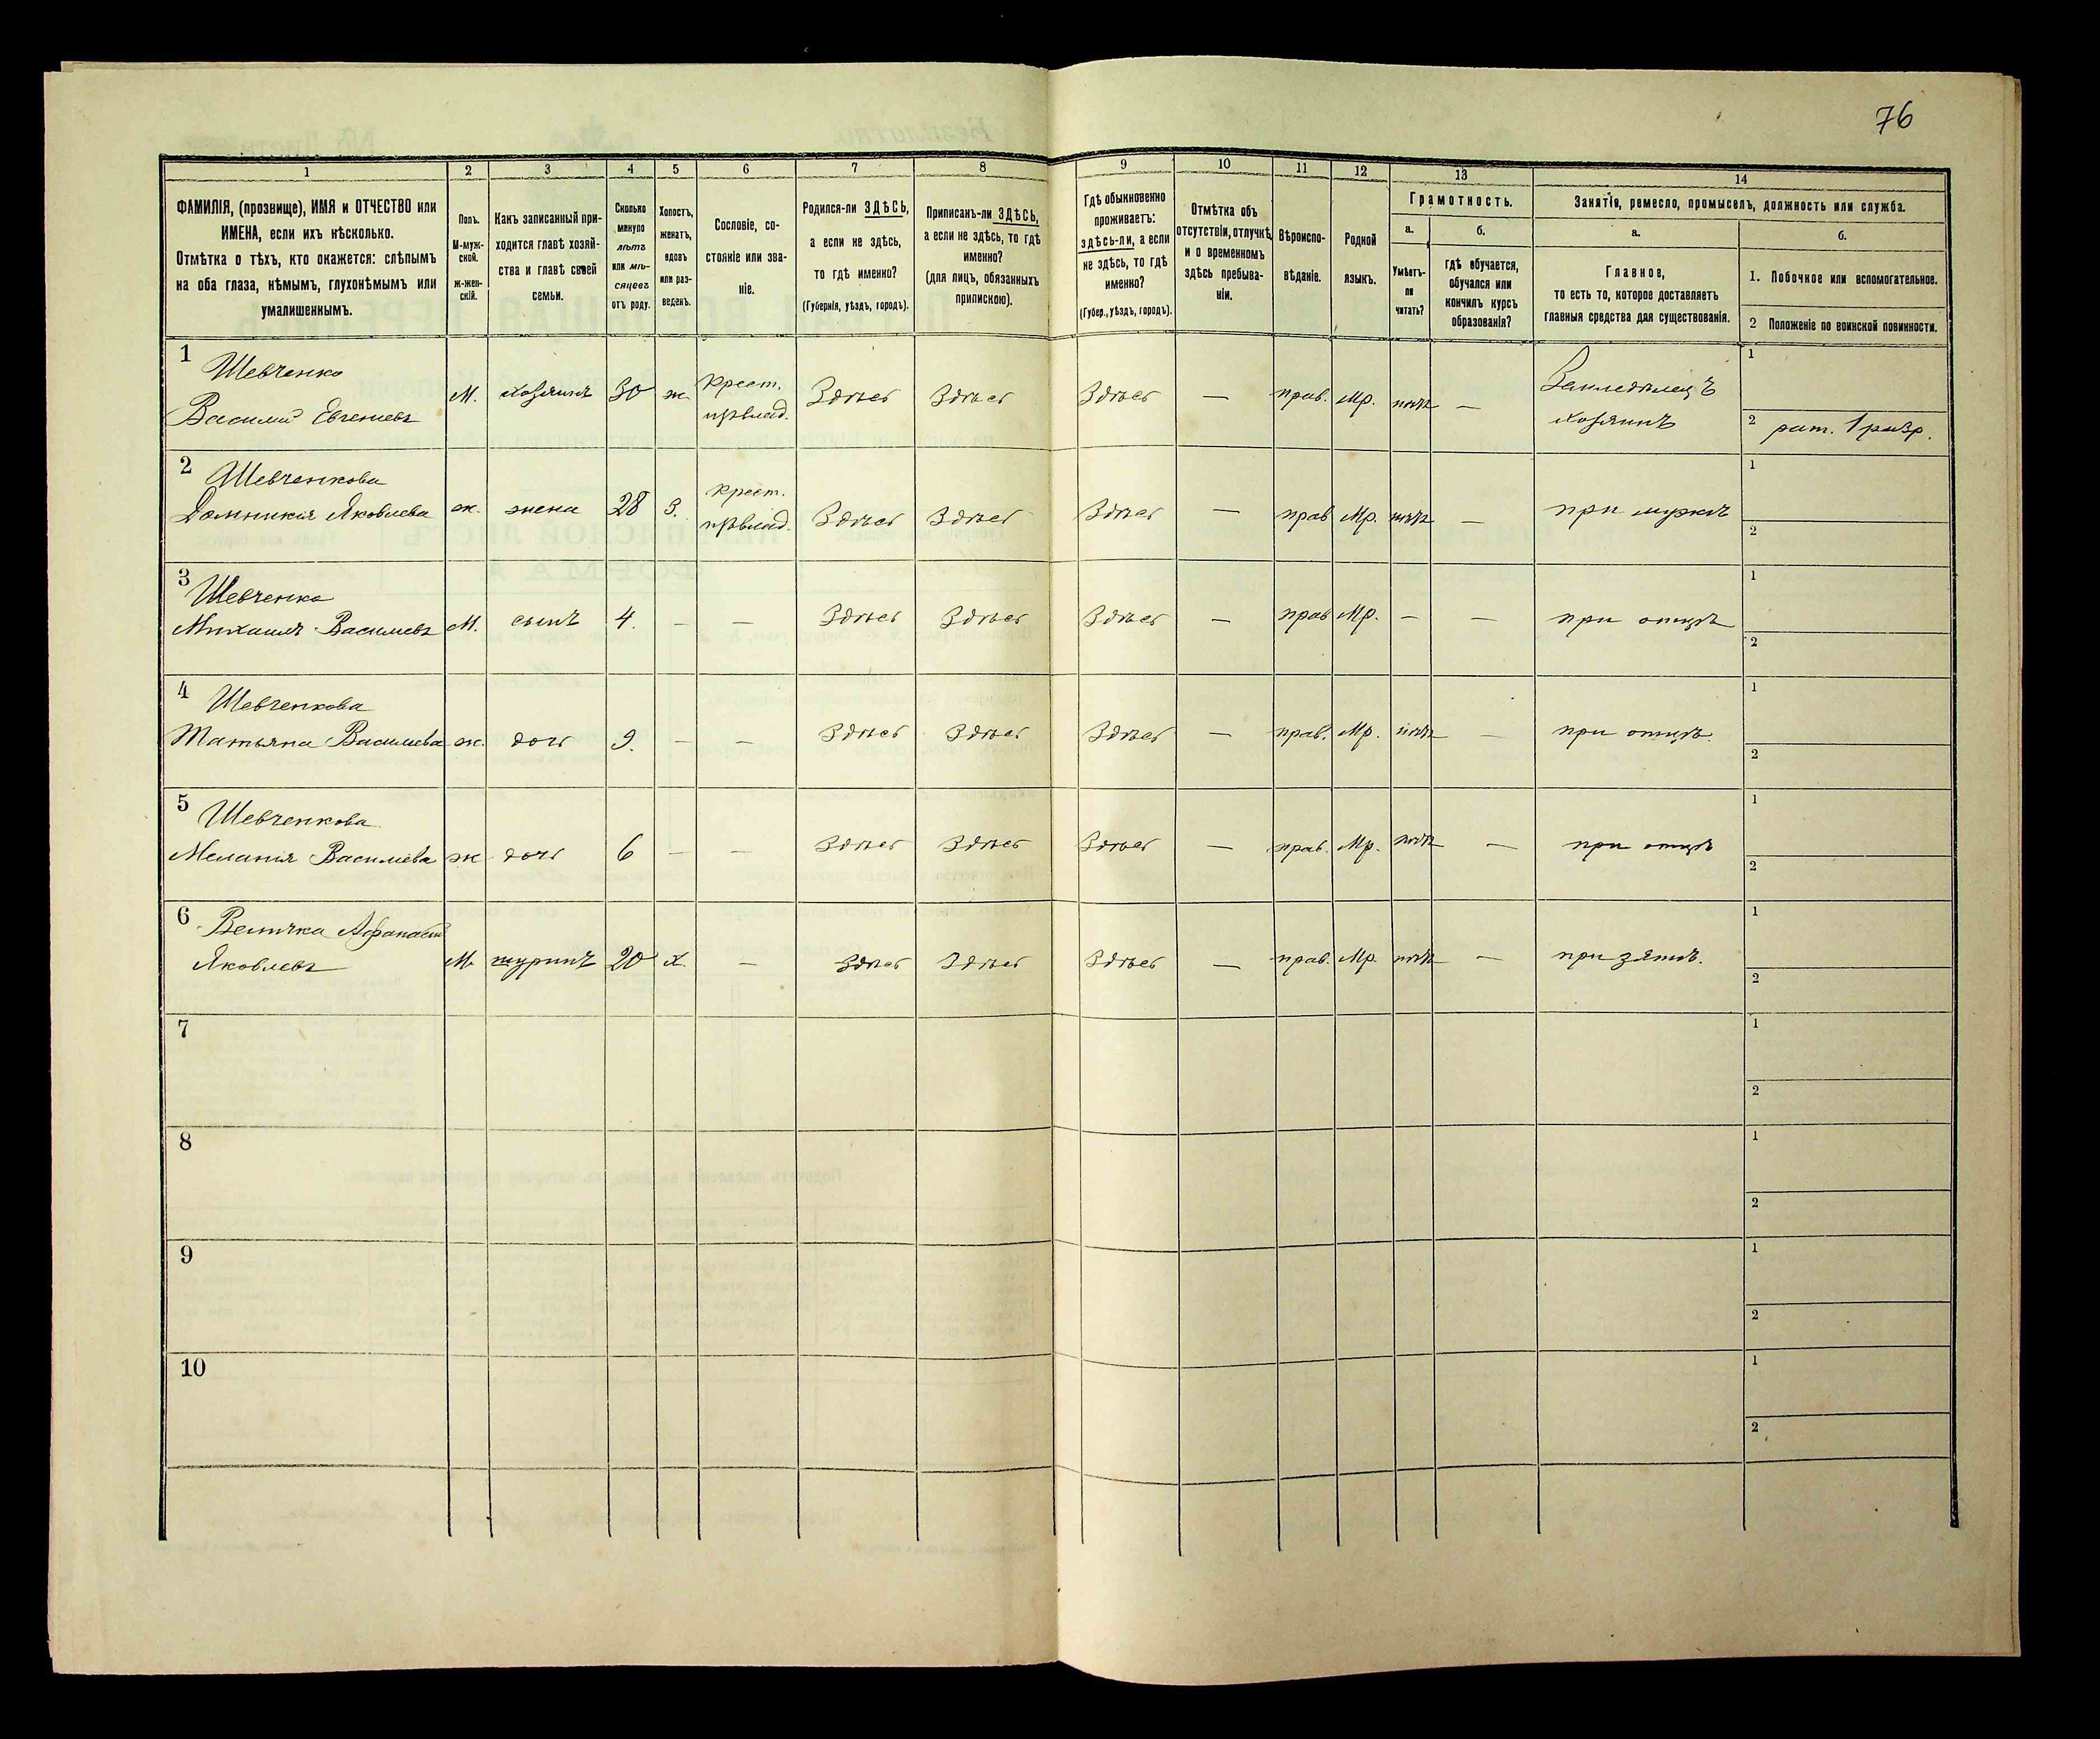 76
1 2 3 4 5 6 7 8 9 10 11 12 13 14
ФАМИЛІЯ, (прозвище), ИМЯ и ОТЧЕСТВО или
ИМЕНА, если ихъ нѣсколько.
Отмѣтка о тѣхъ, кто окажется: слѣпымъ
на оба глаза, нѣмымъ, глухонѣмымъ или
умалишеннымъ.
Полъ.
М-муж-
ской.
ж-жен-
скій.
Какъ записанный при-
ходится главѣ хозяй-
ства и главѣ своей
семьи.
Сколько
минуло
лѣтъ
или мѣ-
сяцевъ
отъ роду.
Холостъ,
женатъ,
вдовъ
или раз-
веденъ.
Сословіе, со-
стояніе или зва-
ніе.
Родился-ли ЗДѢСЬ,
а если не здѣсь,
то гдѣ именно?
(Губернія, уѣздъ, городъ).
Приписанъ-ли ЗДѢСЬ,
а если не здѣсь, то гдѣ
именно?
(для лицъ, обязанныхъ
припискою).
Гдѣ обыкновенно
проживаетъ:
здѣсь-ли, а если
не здѣсь, то гдѣ
именно?
(Губер., уѣздъ, городъ).
Отмѣтка объ
отсутствіи, отлучкѣ
и о временномъ
здѣсь пребыва-
ніи.
Вѣроиспо-
вѣданіе.
Родной
языкъ.
Грамотность.
а.
Умѣетъ-
ли
читать?
б.
гдѣ обучается,
обучался или
кончилъ курсъ
образованія?
Занятія, ремесло, промыселъ, должность или служба.
а.
Главное,
то есть то, которое доставляетъ
главныя средства для существованія.
б.
1. Побочное или вспомогательное.
2 Положеніе по воинской повинности.
1 Шевченко Крест. Земледѣлецъ 1
Василий Евгениевъ М. хозяинъ 30 ж владѣ. Здѣсь Здѣсь Здѣсь — прав. Мр. нѣтъ — хозяинъ 2 рат. 1 разр.
2 Шевченкова Крест. 1
Домникия Яковлева ж. жена 28 З. Здѣсь Здѣсь Здѣсь — прав Мр. нѣтъ — при мужѣ 2
3 Шевченко 1
Михаилъ Василиевъ М. сынъ 4. — — Здѣсь Здѣсь Здѣсь — прав Мр. — — при отцѣ 2
4 Шевченкова 1
Татьяна Василиева ж. дочь 9. — — Здѣсь Здѣсь Здѣсь — прав. Мр. нѣтъ — при отцѣ. 2
5 Шевченкова 1
Мелания Василиева ж дочь 6 — — Здѣсь Здѣсь Здѣсь — прав. Мр. нѣтъ — при отцѣ 2
6 Величка Афанасий 1
Яковлевъ М шуринъ 20 х. — Здѣсь Здѣсь Здѣсь — прав. Мр. нѣтъ — при зятѣ. 2
7 1
2
8 1
2
9 1
2
10 1
2